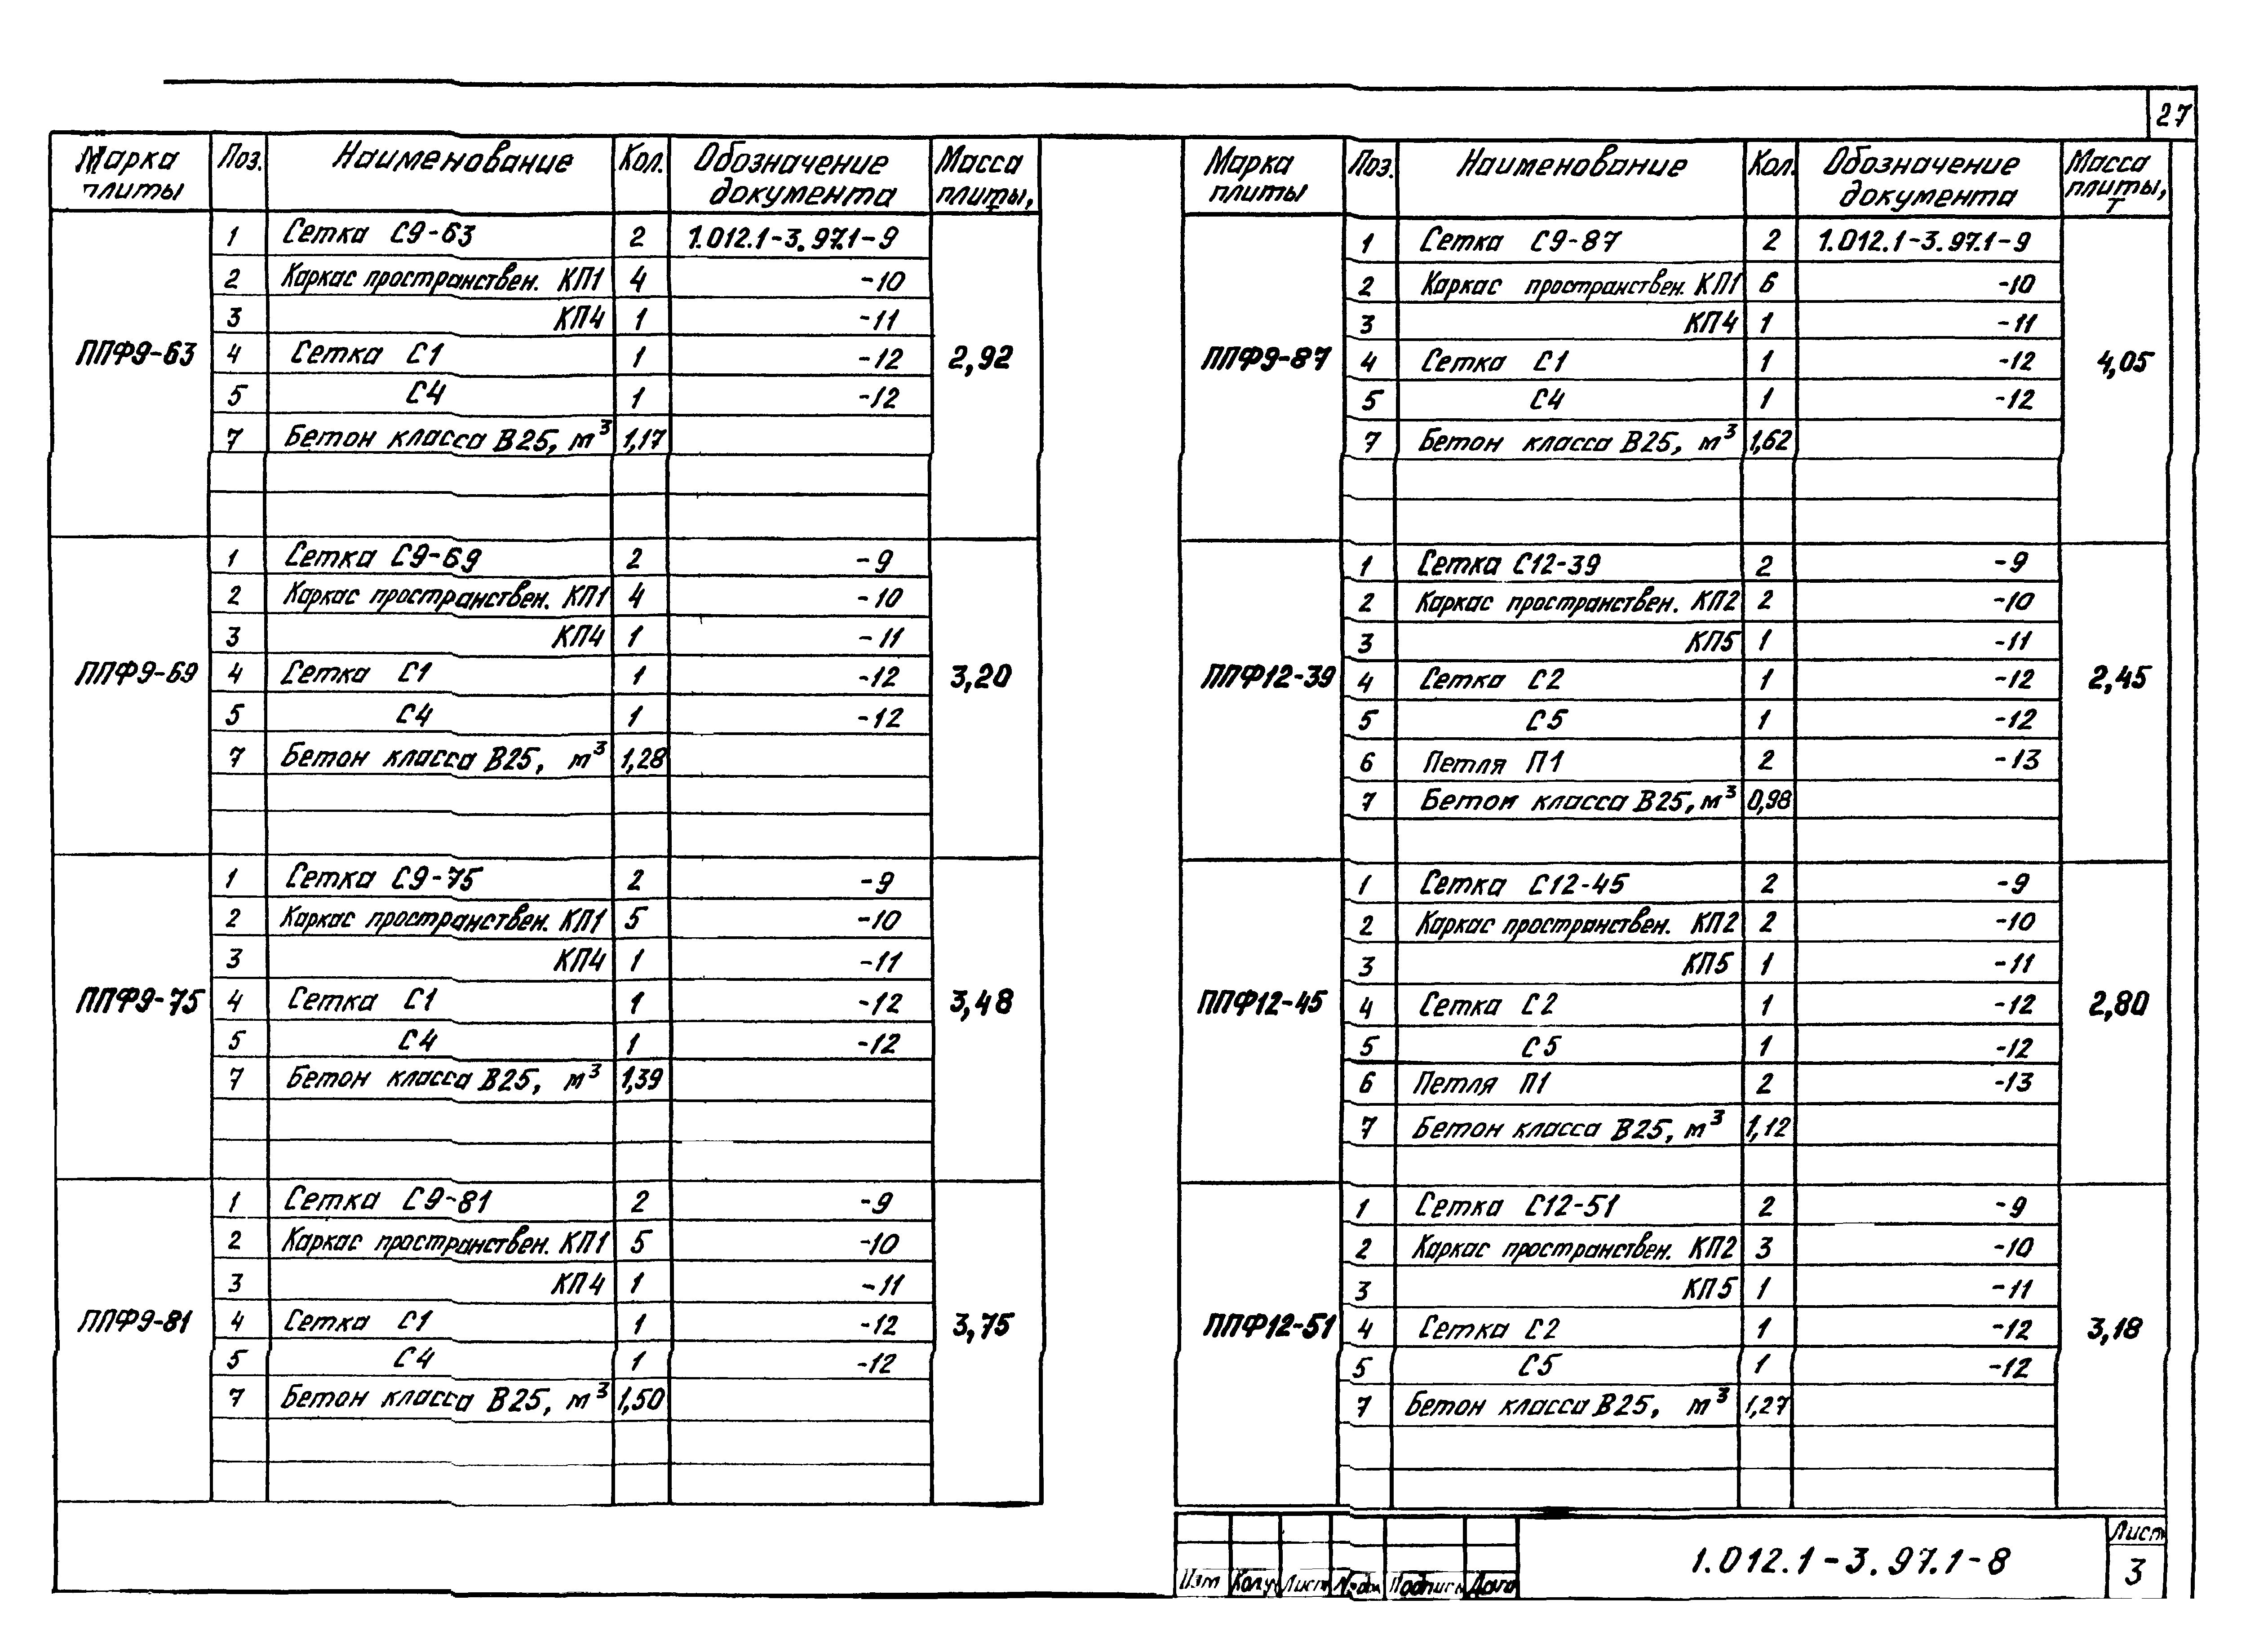 27
Марка плиты Поз. Наименование Кол. Обозначение документа Масса плиты, т
ППФ9-63 2,92
1 Сетка С9-63 2 1.012.1-3.97.1-9
2 Каркас пространствен. КП1 4 -10
3 КП4 1 -11
4 Сетка С1 1 -12
5 С4 1 -12
7 Бетон класса В25, м³ 1,17
ППФ9-69 3,20
1 Сетка С9-69 2 -9
2 Каркас пространствен. КП1 4 -10
3 КП4 1 -11
4 Сетка С1 1 -12
5 С4 1 -12
7 Бетон класса В25, м³ 1,28
ППФ9-75 3,48
1 Сетка С9-75 2 -9
2 Каркас пространствен. КП1 5 -10
3 КП4 1 -11
4 Сетка С1 1 -12
5 С4 1 -12
7 Бетон класса В25, м³ 1,39
ППФ9-81 3,75
1 Сетка С9-81 2 -9
2 Каркас пространствен. КП1 5 -10
3 КП4 1 -11
4 Сетка С1 1 -12
5 С4 1 -12
7 Бетон класса В25, м³ 1,50
Марка плиты Поз. Наименование Кол. Обозначение документа Масса плиты, т
ППФ9-87 4,05
1 Сетка С9-87 2 1.012.1-3.97.1-9
2 Каркас пространствен. КП1 6 -10
3 КП4 1 -11
4 Сетка С1 1 -12
5 С4 1 -12
7 Бетон класса В25, м³ 1,62
ППФ12-39 2,45
1 Сетка С12-39 2 -9
2 Каркас пространствен. КП2 2 -10
3 КП5 1 -11
4 Сетка С2 1 -12
5 С5 1 -12
6 Петля П1 2 -13
7 Бетон класса В25, м³ 0,98
ППФ12-45 2,80
1 Сетка С12-45 2 -9
2 Каркас пространствен. КП2 2 -10
3 КП5 1 -11
4 Сетка С2 1 -12
5 С5 1 -12
6 Петля П1 2 -13
7 Бетон класса В25, м³ 1,12
ППФ12-51 3,18
1 Сетка С12-51 2 -9
2 Каркас пространствен. КП2 3 -10
3 КП5 1 -11
4 Сетка С2 1 -12
5 С5 1 -12
7 Бетон класса В25, м³ 1,27
Изм Колу Лист №док Подпись Дата
1.012.1-3.97.1-8
Лист
3